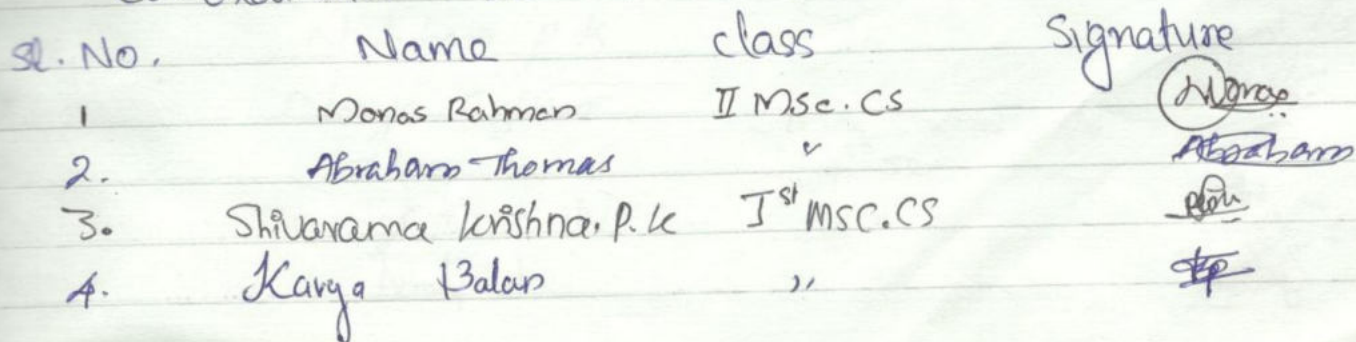 Sl. No. Name class Signature
1 Monas Rahman II Msc. CS Monas
2. Abraham Thomas " Abraham
3. Shivarama krishna. P. K Ist MSC. CS
4. Kavya Balan "